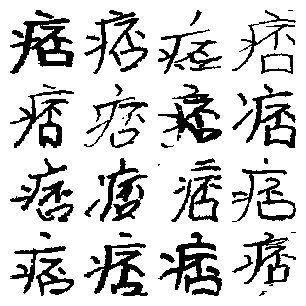 痞痞痞痞
痞痞痞痞
痞痞痞痞
痞痞痞痞